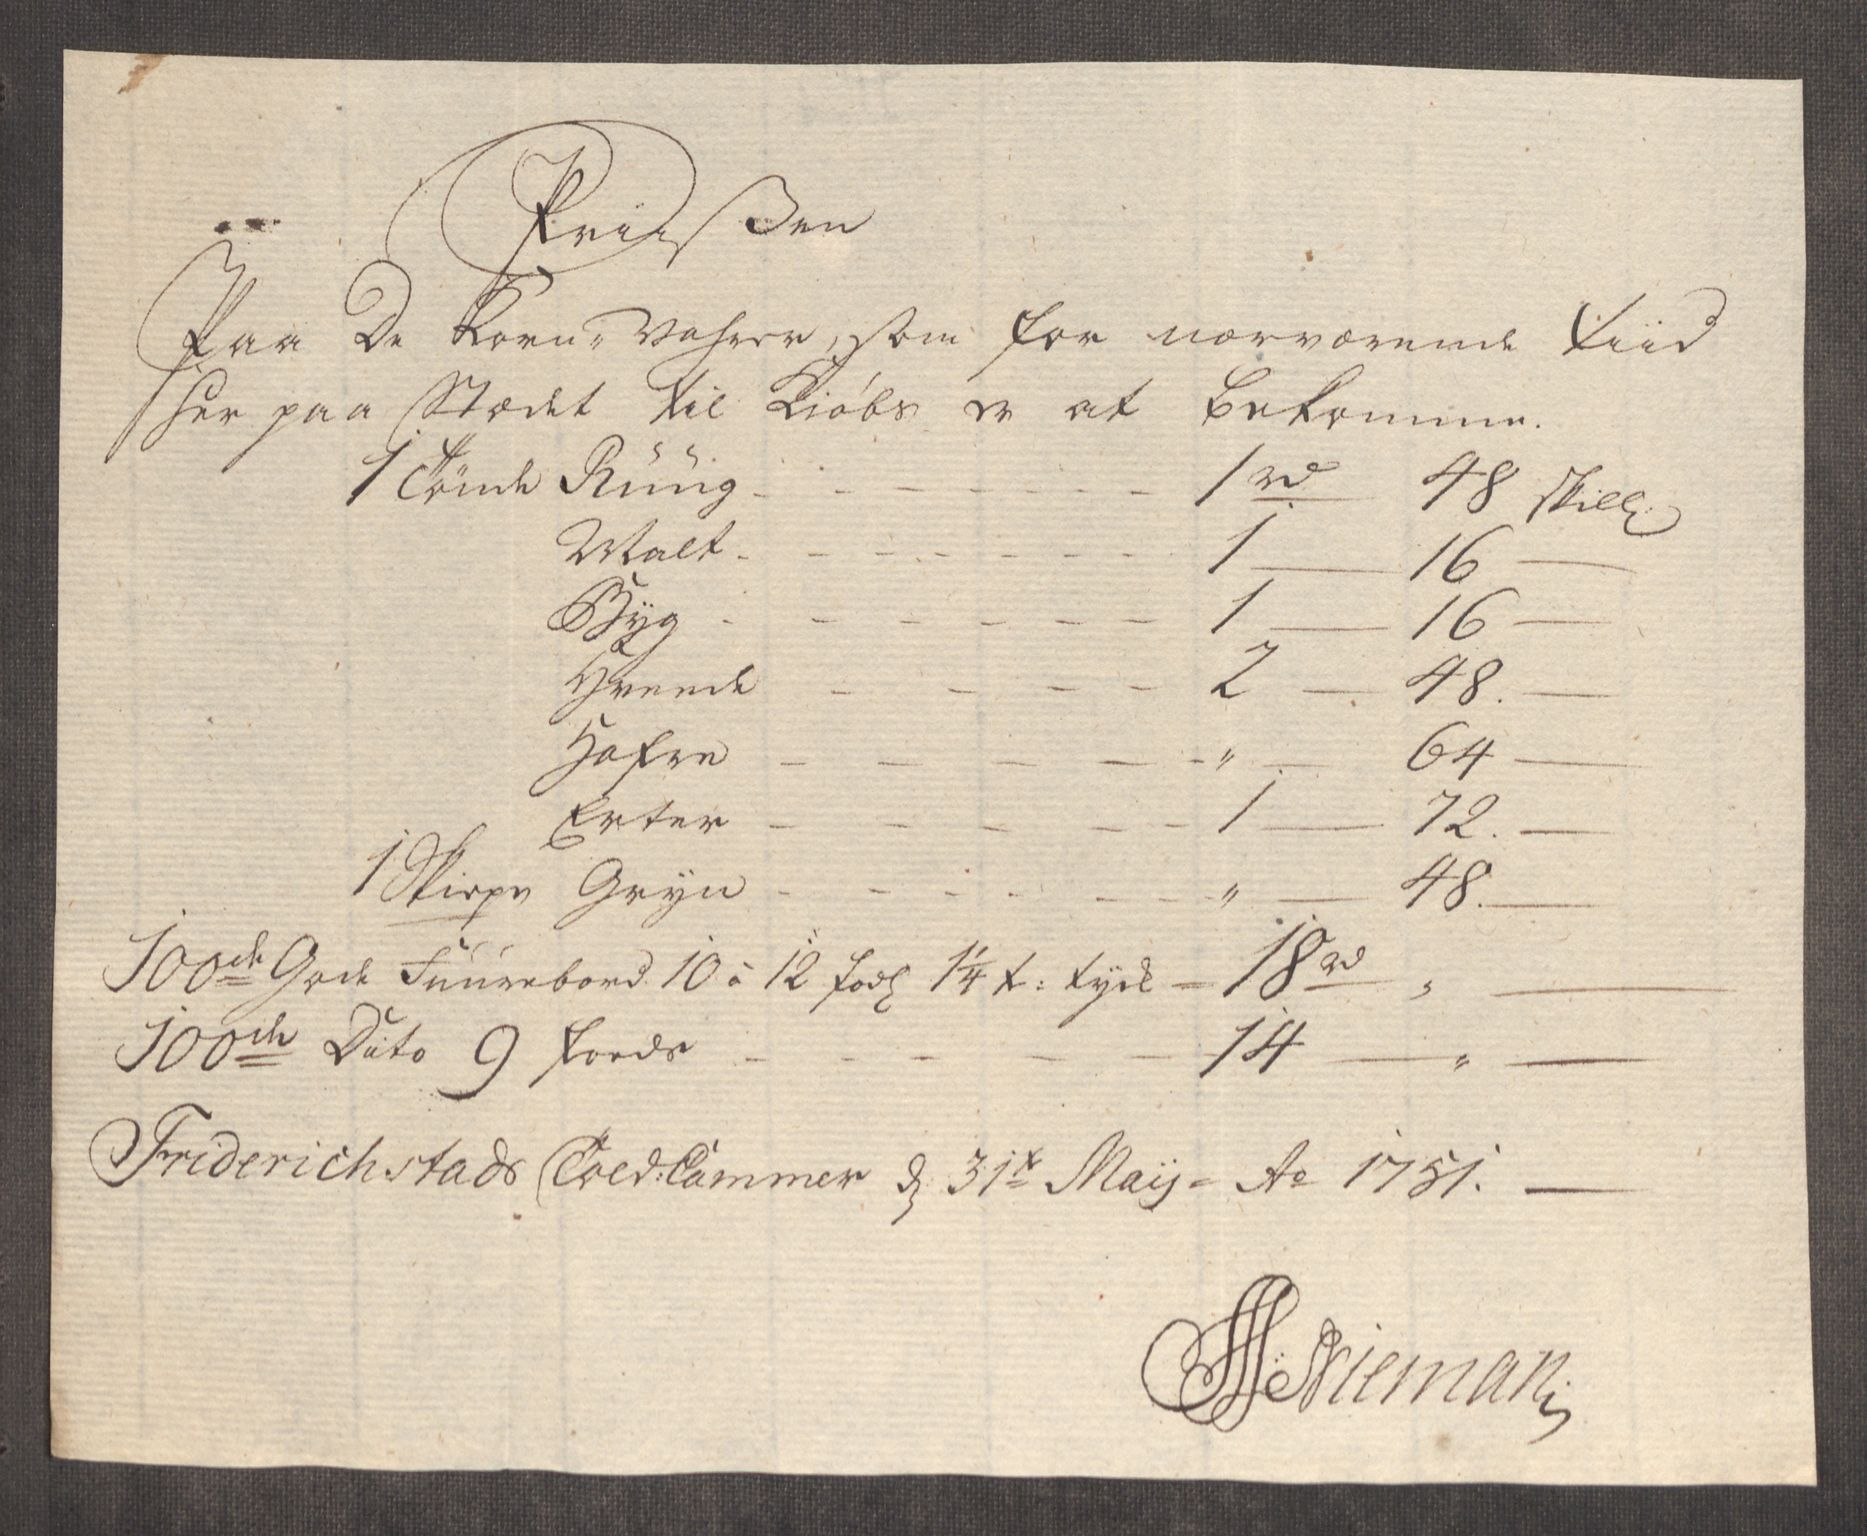 Priisßen
Paa De Korn-Vahrer, som for nærværende Tiid
her paa Stædet til Kiøbs er at bekomme.
1 Tönde Rüüg - - - - - - - 1 rd 48 skill:
Malt - - - - - - - 1 — 16 —
Byg - - - - - - 1 — 16 —
Hveede - - - - 2 — 48. —
Hafre - - - - - " — 64 —
Erter - - - - - 1 — 72. —
1 Skiepe Gryn - - - - - - " — 48. —
100de Gode Fuurebord 10 à 12 fods 1¼ t: tyck - 18 rd " —
100de Dito 9 foeds - - - - - 14 — " —
Friderichstads Told:Cammer d 31te Maij - Ao 1751. —
Nieman